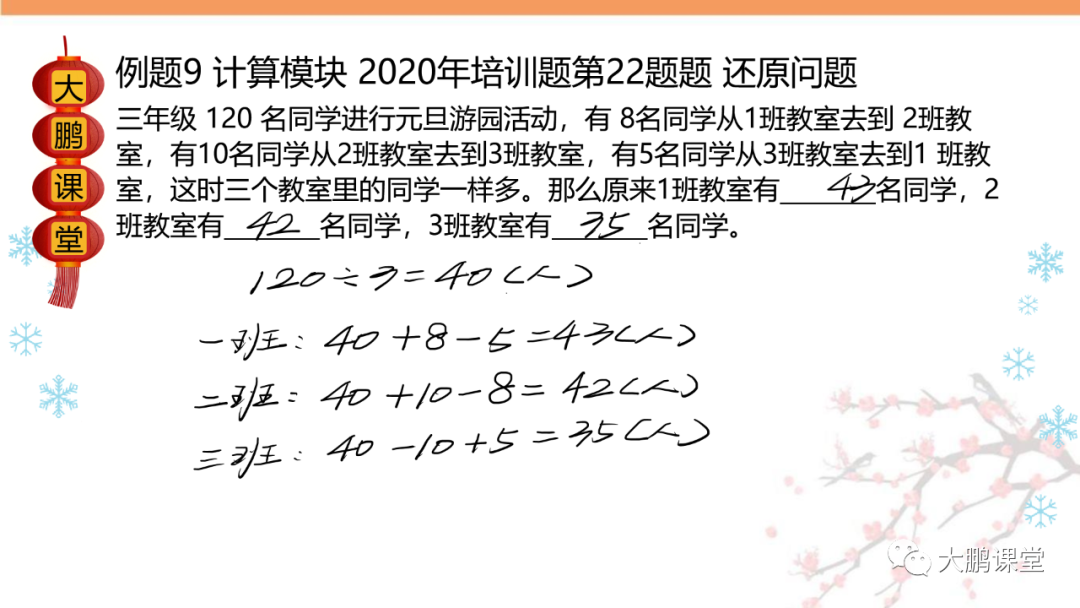 大鹏课堂
例题9 计算模块 2020年培训题第22题题 还原问题
三年级 120 名同学进行元旦游园活动，有 8名同学从1班教室去到 2班教
室，有10名同学从2班教室去到3班教室，有5名同学从3班教室去到1 班教
室，这时三个教室里的同学一样多。那么原来1班教室有 43 名同学，2
班教室有 42 名同学，3班教室有 35 名同学。
120÷3=40(人)
一班：40+8-5=43(人)
二班：40+10-8=42(人)
三班：40-10+5=35(人)
大鹏课堂